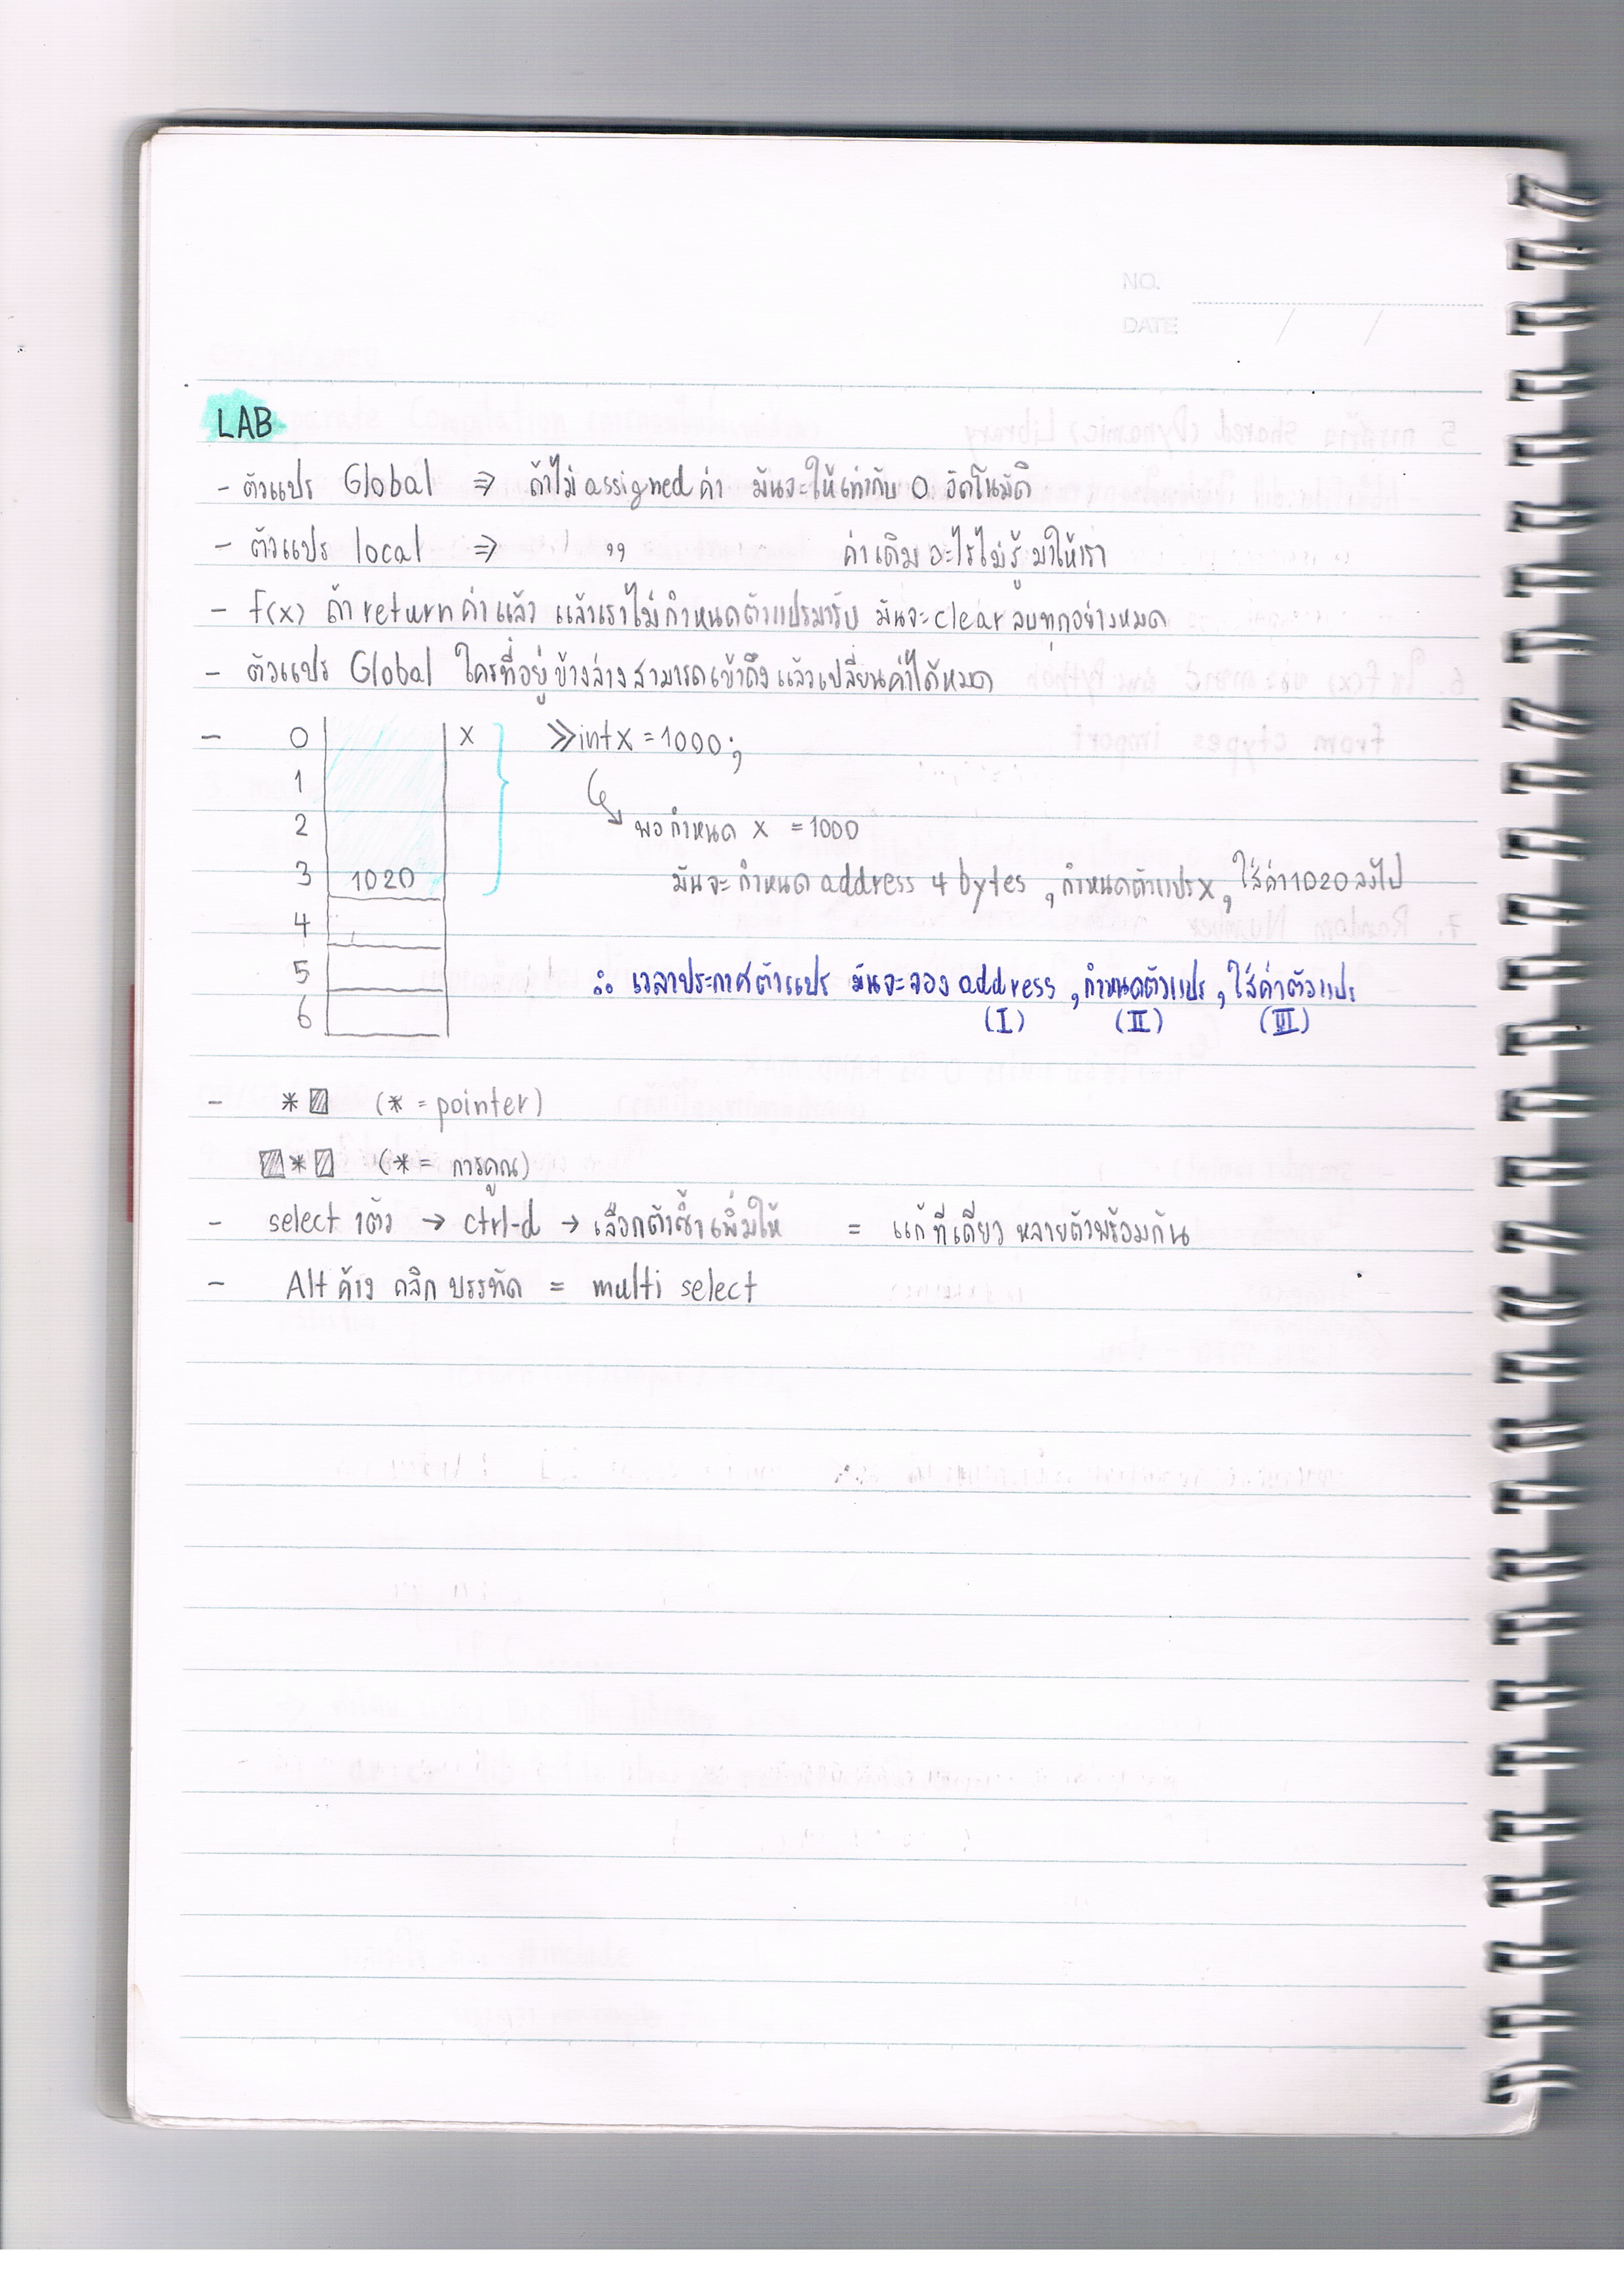 NO.
DATE / /
LAB
- ตัวแปร Global ⇒ ถ้าไม่ assigned ค่า มันจะให้เท่ากับ 0 อัตโนมัติ
- ตัวแปร local ⇒ ,, ค่าเดิมอะไรไม่รู้มาให้เรา
- f(x) ถ้า return ค่าแล้ว แล้วเราไม่กำหนดตัวแปรมารับ มันจะ clear ลบทุกอย่างหมด
- ตัวแปร Global ใครที่อยู่ข้างล่างสามารถเข้าถึงแล้วเปลี่ยนค่าได้หมด
- 0 x >> int x = 1000;
1
2 พอกำหนด x = 1000
3 1020 มันจะกำหนด address 4 bytes , กำหนดตัวแปร x , ใส่ค่า 1020 ลงไป
4
5 ∴ เวลาประกาศตัวแปร มันจะจอง address , กำหนดตัวแปร , ใส่ค่าตัวแปร
6 (I) (II) (III)
- * (* = pointer)
* (* = การคูณ)
- select 1 ตัว → ctrl-d → เลือกตัวซ้ำเพิ่มให้ = แก้ทีเดียว หลายตัวพร้อมกัน
- Alt ค้าง คลิก บรรทัด = multi select